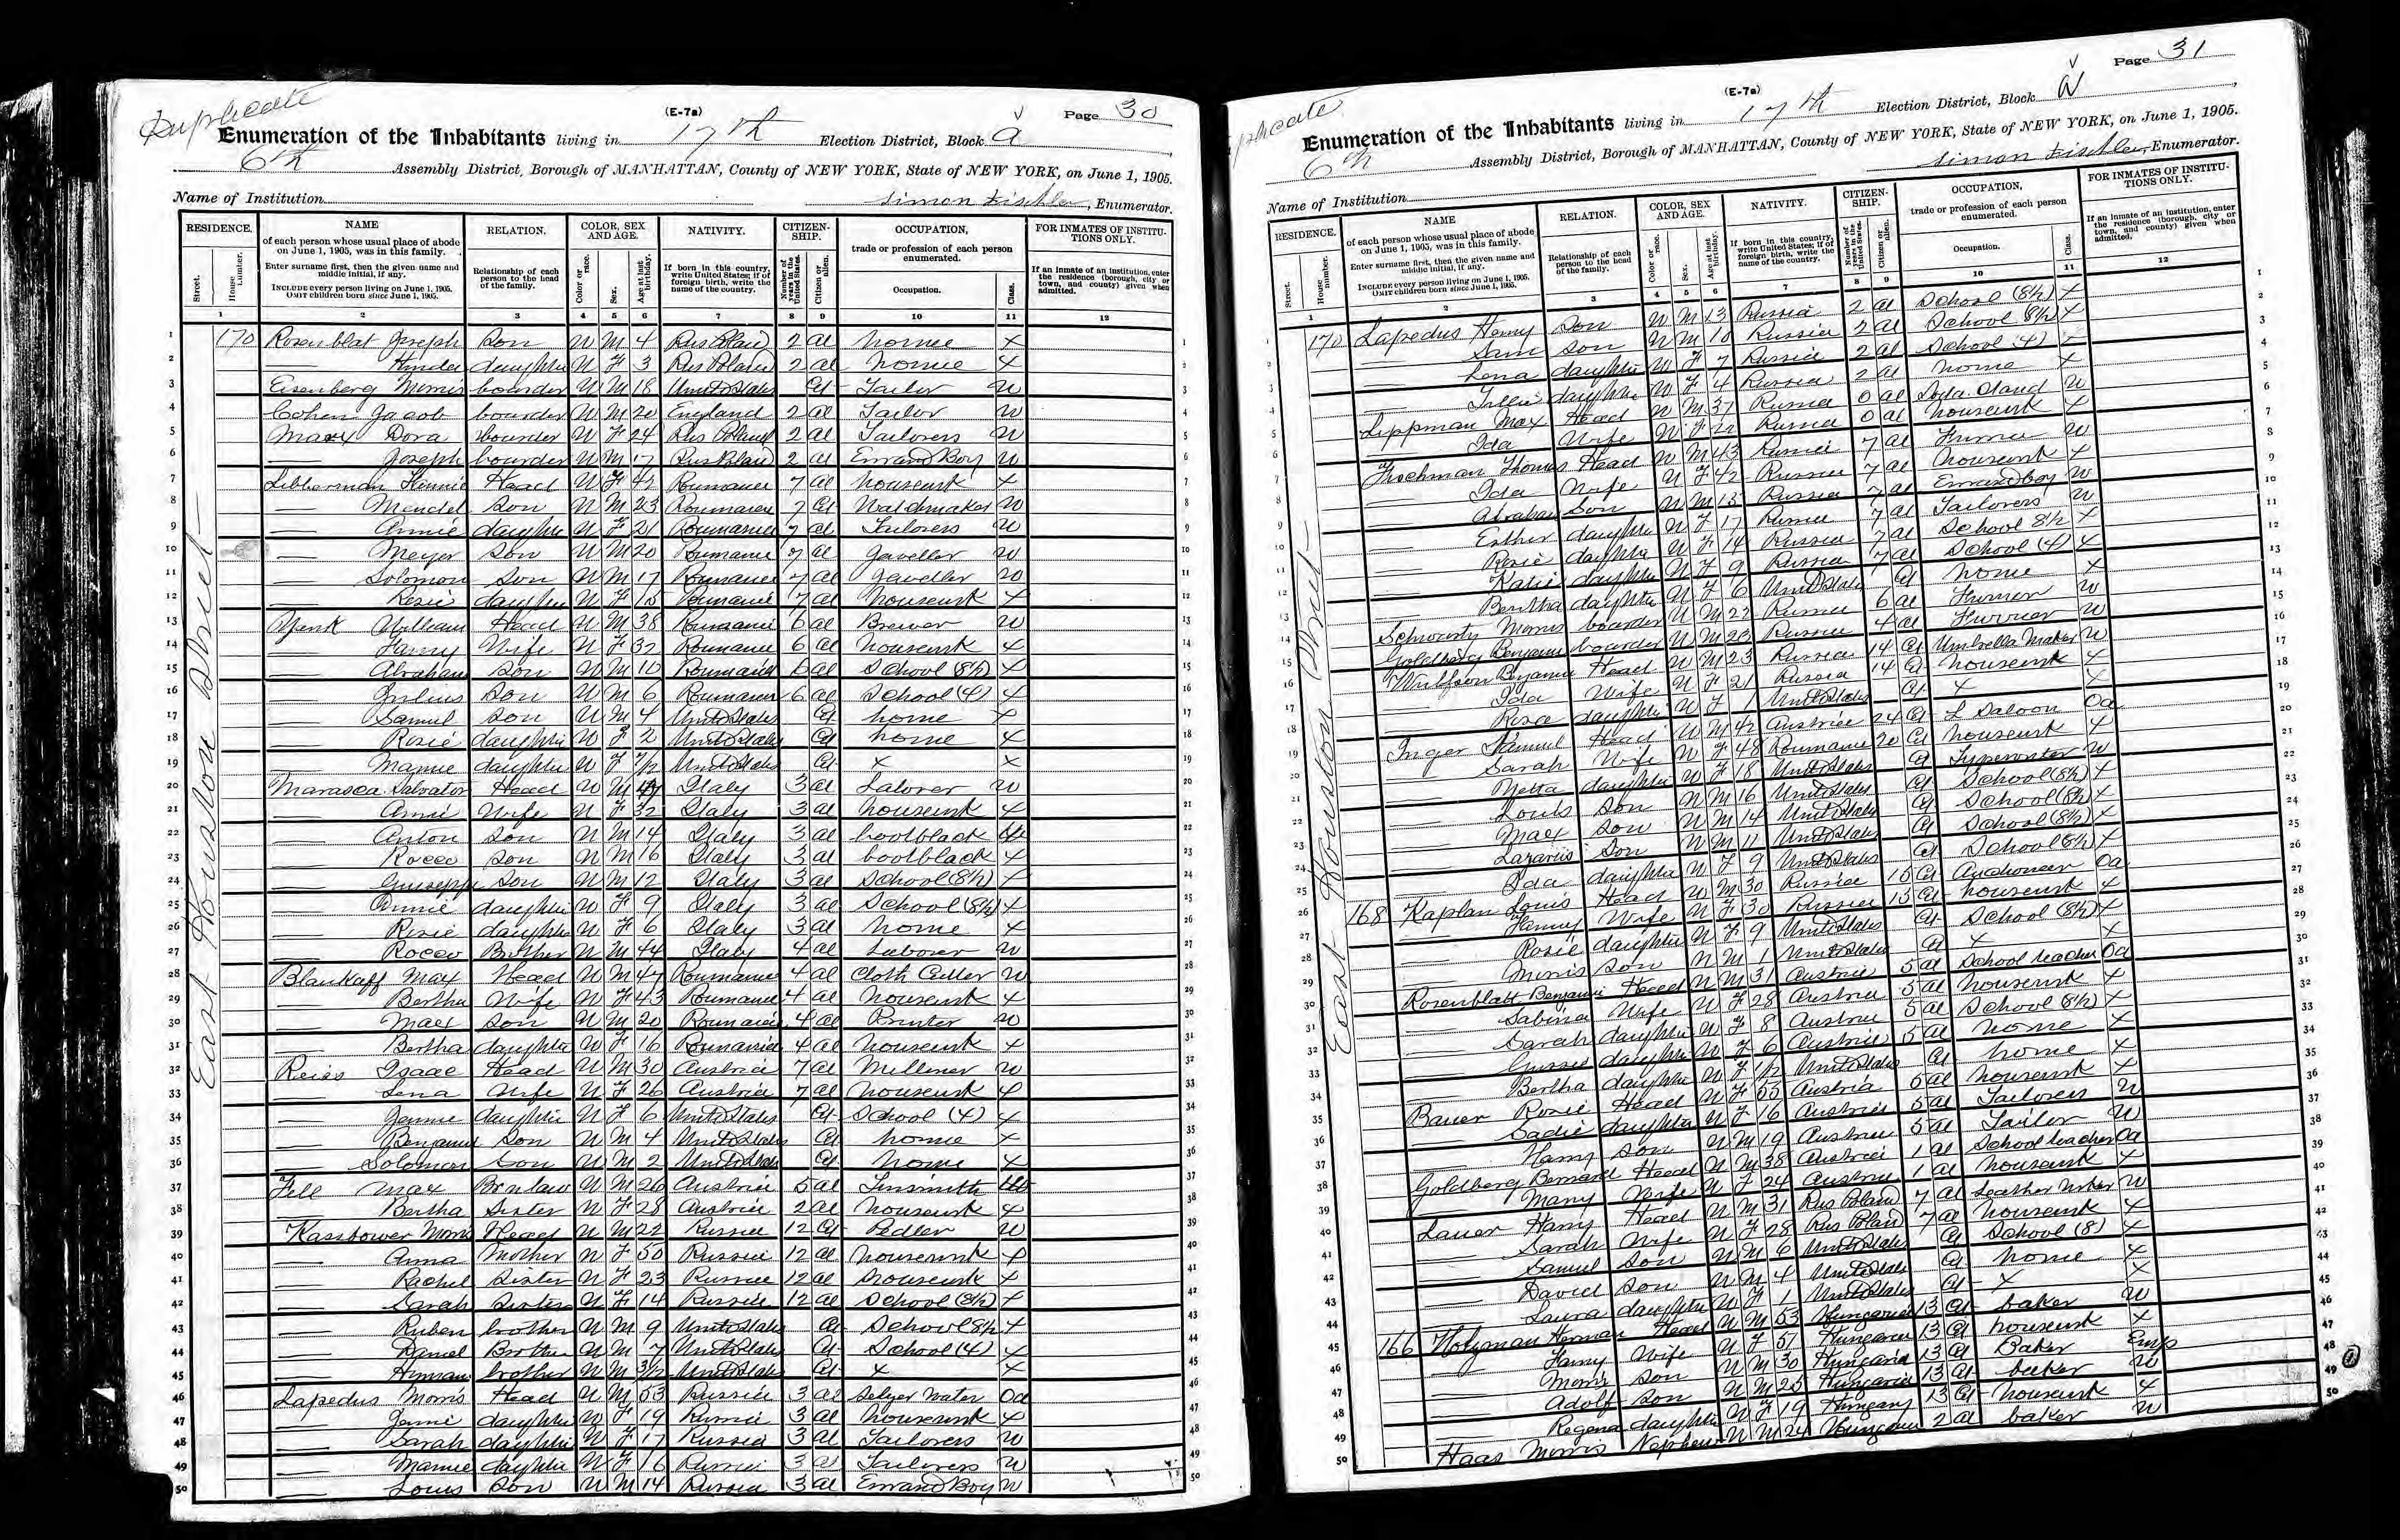 Duplicate
(E-7a)
Page 30
Enumeration of the Inhabitants living in 17th Election District, Block a
6th Assembly District, Borough of MANHATTAN, County of NEW YORK, State of NEW YORK, on June 1, 1905.
Name of Institution Simon Fischler, Enumerator.
RESIDENCE. NAME RELATION. COLOR, SEX AND AGE. NATIVITY. CITIZENSHIP. OCCUPATION, FOR INMATES OF INSTITUTIONS ONLY.
East Houston Street
1 170 Rosenblat Joseph Son W M 4 Rus Polan 2 al home X
2 — Hinda daughter W F 3 Rus Poland 2 al home X
3 Eisenberg Morris boarder W M 18 United States Ct Tailor W
4 Cohen Jacob boarder W M 20 England 2 al Tailor W
5 Marx Dora boarder W F 24 Rus Poland 2 al Tailoress W
6 — Joseph boarder W M 17 Rus Polan 2 al Errand Boy W
7 Libberman Head W F 42 Roumania 7 al housewk X
8 — Mendel Son W M 23 Roumania 7 Ct Watchmaker W
9 — Annie daughter W F 21 Roumania 7 al Tailoress W
10 — Meyer Son W M 20 Roumanie 7 al Jeweller W
11 — Solomon Son W M 17 Roumania 7 al Jeweller W
12 — Rosie daughter W F 15 Roumanie 7 al housewk X
13 William Head W M 38 Roumanie 6 al Brewer W
14 — Fanny Wife W F 32 Roumanie 6 al housewk X
15 — Abraham Son W M 10 Roumania 6 al School (8½) X
16 — Julius Son W M 6 Roumania 6 al School (4) X
17 — Samuel Son W M 4 United States Ct home X
18 — Rosie daughter W F 2 United States Ct home X
19 — Mamie daughter W F United States Ct X X
20 Marasca Salvator Head W M Italy 3 al Laborer W
21 — Annie Wife W F 32 Italy 3 al housewk X
22 — Anton Son W M 14 Italy 3 al bootblack
23 — Rocco Son W M 16 Italy 3 al bootblack X
24 — Guiseppe Son W M 12 Italy 3 al School (8½) X
25 — Annie daughter W F 9 Italy 3 al School (8½) X
26 — Rosie daughter W F 6 Italy 3 al home X
27 — Rocco Brother W M 44 Italy 4 al Laborer W
28 Blankaff Max Head W M 47 Roumania 4 al Cloth Cutter W
29 — Bertha Wife W F 43 Roumania 4 al housewk X
30 — Max Son W M 20 Roumania 4 al Printer W
31 — Bertha daughter W F 16 Roumania 4 al housewk X
32 Reiss Isaac Head W M 30 Austria 7 al Milliner W
33 — Lena Wife W F 26 Austria 7 al housewk X
34 — Jennie daughter W F 6 United States Ct School (4) X
35 — Benjamin Son W M 4 United States Ct home X
36 — Solomon Son W M 2 United States Ct home X
37 Fell Max Br n law W M 26 Austria 5 al Tinsmith
38 — Bertha Sister W F 28 Austria 2 al housewk X
39 Kassbower Morris Head W M 22 Russia 12 Ct Pedler W
40 — Anna Mother W F 50 Russia 12 al housewk X
41 — Rachel Sister W F 23 Russia 12 al housewk X
42 — Sarah Sister W F 14 Russia 12 al School (8½) X
43 — Ruben brother W M 9 United States Ct School 8½ X
44 — Daniel Brother W M 7 United States Ct School (4) X
45 — Hyman brother W M United States Ct X X
46 Lapedus Morris Head W M 53 Russia 3 al Selzer Water Oa
47 — Jennie daughter W F 19 Russia 3 al housewk X
48 — Sarah daughter W F 17 Russia 3 al Tailoress W
49 — Mamie daughter W F 16 Russia 3 al Tailoress W
50 — Louis Son W M 14 Russia 3 al Errand Boy W
Duplicate
(E-7a)
Page 31
Enumeration of the Inhabitants living in 17th Election District, Block a
6th Assembly District, Borough of MANHATTAN, County of NEW YORK, State of NEW YORK, on June 1, 1905.
Name of Institution Simon Fischler, Enumerator.
RESIDENCE. NAME RELATION. COLOR, SEX AND AGE. NATIVITY. CITIZENSHIP. OCCUPATION, FOR INMATES OF INSTITUTIONS ONLY.
East Houston Street
1 170 Lapedus Harry Son W M 13 Russia 2 al School (8½) X
2 — Sam Son W M 10 Russia 2 al School 8½ X
3 — Lena daughter W F 7 Russia 2 al School (4)
4 — Tillie daughter W F 4 Russia 2 al home X
5 Lippman Max Head W M 37 Russia 0 al Soda Stand W
6 — Ida Wife W F 22 Russia 0 al housewk X
7 Fischman Thomas Head W M 43 Russia 7 al Furrier W
8 — Ida Wife W F 42 Russia 7 al housewk X
9 — Abraham Son W M 15 Russia 7 al Errand boy W
10 — Esther daughter W F 17 Russia 7 al Tailoress W
11 — Rosie daughter W F 14 Russia 7 al School 8½ X
12 — Katie daughter W F 9 Russia 7 al School (4) X
13 — Bertha daughter W F 6 United States Ct home X
14 Schwartz Morris boarder W M 22 Russia 6 al Furrier W
15 Goldberg Benjamin boarder W M 23 Russia 4 al Furrier W
16 Wulfson Benjamin Head W M 23 Russia 14 Ct Umbrella Maker W
17 — Ida Wife W F 21 Russia 14 Ct housewk X
18 — Rosa daughter W F 1 United States Ct X X
19 Inger Samuel Head W M 42 Austria 24 Ct L Saloon Oa
20 — Sarah Wife W F 48 Roumanie 20 Ct housewk X
21 — Netta daughter W F 18 United States Ct Typewriter W
22 — Louis Son W M 16 United States Ct School (8½) X
23 — Max Son W M 14 United States Ct School (8½) X
24 — Lazarus Son W M 11 United States Ct School (8½) X
25 — Ida daughter W F 9 United States Ct School (8½) X
26 168 Kaplan Louis Head W M 30 Russia 15 Ct Auctioneer Oa
27 — Fanny Wife W F 30 Russia 13 Ct housewk X
28 — Rosie daughter W F 9 United States Ct School (8½) X
29 — Morris Son W M 1 United States Ct X X
30 Rosenblatt Benjamin Head W M 31 Austria 5 al School teacher Oa
31 — Sabina Wife W F 28 Austria 5 al housewk X
32 — Sarah daughter W F 8 Austria 5 al School 8½) X
33 — Gussie daughter W F 6 Austria 5 al home X
34 — Bertha daughter W F 1½ United States Ct home X
35 Bauer Rosie Head W F 55 Austria 5 al housewk X
36 — Sadie daughter W F 16 Austria 5 al Tailoress W
37 — Harry Son W M 19 Austria 5 al Tailor W
38 Goldberg Bernard Head W M 38 Austria 1 al School teacher Oa
39 — Mary Wife W F 24 Austria 1 al housewk X
40 Lauer Harry Head W M 31 Rus Poland 7 al Leather Worker W
41 — Sarah Wife W F 28 Rus Polan 7 al housewk X
42 — Samuel Son W M 6 United States Ct School (8) X
43 — David Son W M 4 United States Ct home X
44 — Laura daughter W F 1 United States Ct X X
45 166 Holzman Herman Head W M 53 Hungaria 13 Ct baker W
46 — Fanny Wife W F 51 Hungaria 13 Ct housewk X
47 — Morris Son W M 30 Hungaria 13 Ct Baker Emp
48 — Adolf Son W M 25 Hungaria 13 Ct baker W
49 — Regena daughter W F 19 Hungary 13 Ct housewk X
50 Haas Morris Nephew W M 24 Hungaria 2 al baker W